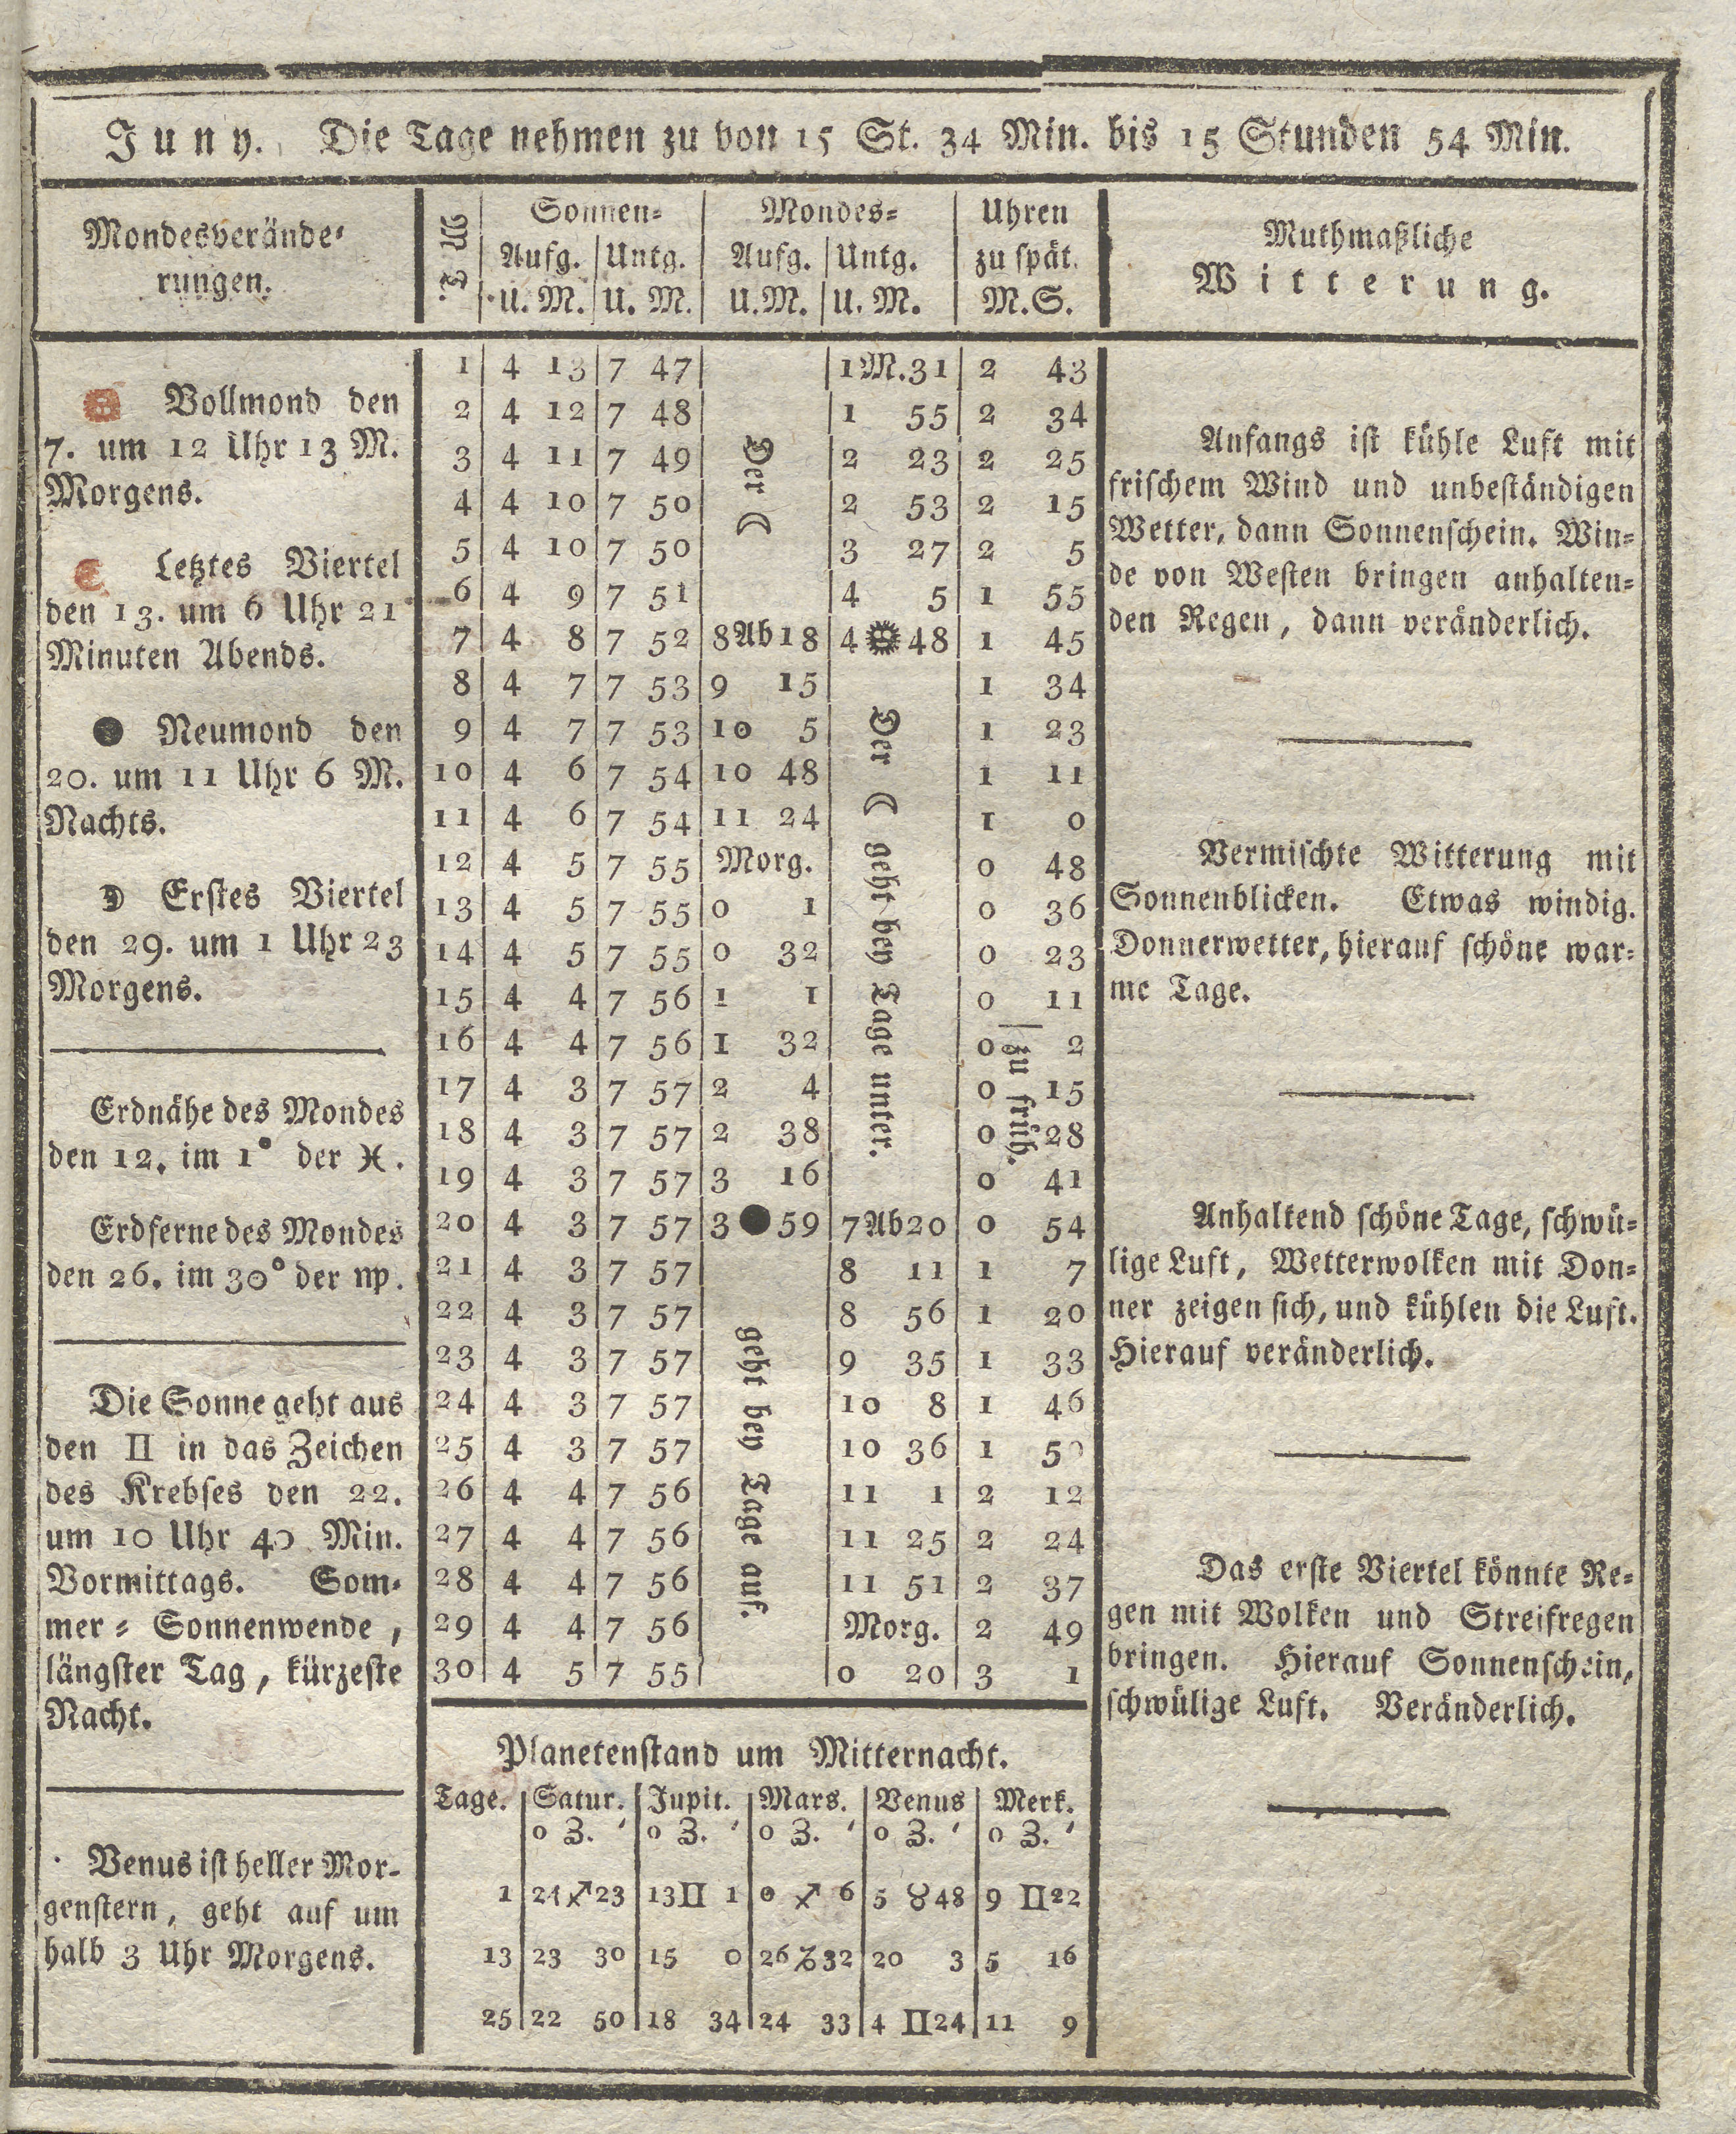 Juny. Die Tage nehmen zu von 15 St. 34 Min. bis 15 Stunden 54 Min.
Mondesverände-
rungen.
Vollmond den
7. um 12 Uhr 13 M.
Morgens.
☾ Letztes Viertel
den 13. um 6 Uhr 21
Minuten Abends.
● Neumond den
20. um 11 Uhr 6 M.
Nachts.
☽ Erstes Viertel
den 29. um 1 Uhr 23
Morgens.
Erdnähe des Mondes
den 12. im 1° der ♓.
Erdferne des Mondes
den 26. im 30° der ♍.
Die Sonne geht aus
den ♊ in das Zeichen
des Krebses den 22.
um 10 Uhr 40 Min.
Vormittags. Som-
mer-Sonnenwende,
längster Tag, kürzeste
Nacht.
Venus ist heller Mor-
genstern, geht auf um
halb 3 Uhr Morgens.
M. T.
Sonnen- Mondes- Uhren
Aufg. Untg. Aufg. Untg. zu spät.
U. M. U. M. U. M. U. M. M. S.
1 4 13 7 47 1 M. 31 2 43
2 4 12 7 48 1 55 2 34
3 4 11 7 49 2 23 2 25
4 4 10 7 50 2 53 2 15
5 4 10 7 50 3 27 2 5
6 4 9 7 51 4 5 1 55
7 4 8 7 52 8 Ab 18 4 48 1 45
8 4 7 7 53 9 15 1 34
9 4 7 7 53 10 5 1 23
10 4 6 7 54 10 48 1 11
11 4 6 7 54 11 24 1 0
12 4 5 7 55 Morg. 0 48
13 4 5 7 55 0 1 0 36
14 4 5 7 55 0 32 0 23
15 4 4 7 56 1 1 0 11
16 4 4 7 56 1 32 0 2
17 4 3 7 57 2 4 0 15
18 4 3 7 57 2 38 0 28
19 4 3 7 57 3 16 0 41
20 4 3 7 57 3 ● 59 7 Ab 20 0 54
21 4 3 7 57 8 11 1 7
22 4 3 7 57 8 56 1 20
23 4 3 7 57 9 35 1 33
24 4 3 7 57 10 8 1 46
25 4 3 7 57 10 36 1
26 4 4 7 56 11 1 2 12
27 4 4 7 56 11 25 2 24
28 4 4 7 56 11 51 2 37
29 4 4 7 56 Morg. 2 49
30 4 5 7 55 0 20 3 1
Der ☾ geht bey Tage auf.
Der ☾ geht bey Tage unter.
zu früh.
Planetenstand um Mitternacht.
Tage. Satur. Jupit. Mars. Venus Merk.
o Z. ′ o Z. ′ o Z. ′ o Z. ′ o Z. ′
1 24 ♐ 23 13 ♊ 1 0 ♐ 6 5 ♉ 48 9 ♊ 22
13 23 30 15 0 26 ♑ 32 20 3 5 16
25 22 50 18 34 24 33 4 ♊ 24 11 9
Muthmaßliche
Witterung.
Anfangs ist kühle Luft mit
frischem Wind und unbeständigen
Wetter, dann Sonnenschein. Win-
de von Westen bringen anhalten-
den Regen, dann veränderlich.
Vermischte Witterung mit
Sonnenblicken. Etwas windig.
Donnerwetter, hierauf schöne war-
me Tage.
Anhaltend schöne Tage, schwü-
lige Luft, Wetterwolken mit Don-
ner zeigen sich, und kühlen die Luft.
Hierauf veränderlich.
Das erste Viertel könnte Re-
gen mit Wolken und Streifregen
bringen. Hierauf Sonnenschein,
schwülige Luft. Veränderlich.